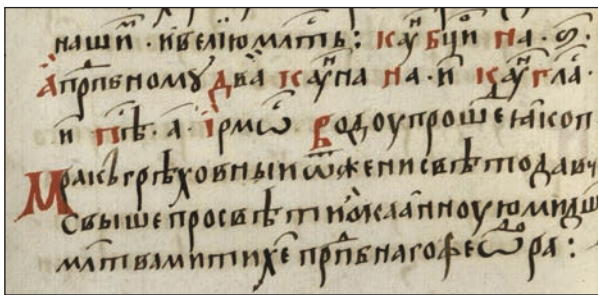 наши̾ · и велїю мл҃ть : каѹ҃ бц҃и на · ѕ҃ ·
А҆ прⷣпбномꙋ два̀ каѹ҃на на · и҃ каѹ҃ гла ·
и҃ пѣ҃ · а҃ · і҆рмⷭ҇ѡ Водоу прошеⷣ ꙗко п
Мракъ грѣховныи ѿжени свѣтодавч
Свыше просвѣти ѻкааннꙋю ми дш҃
млт҃вами ти хе҃ прⷣпбнаго феѡⷣра :